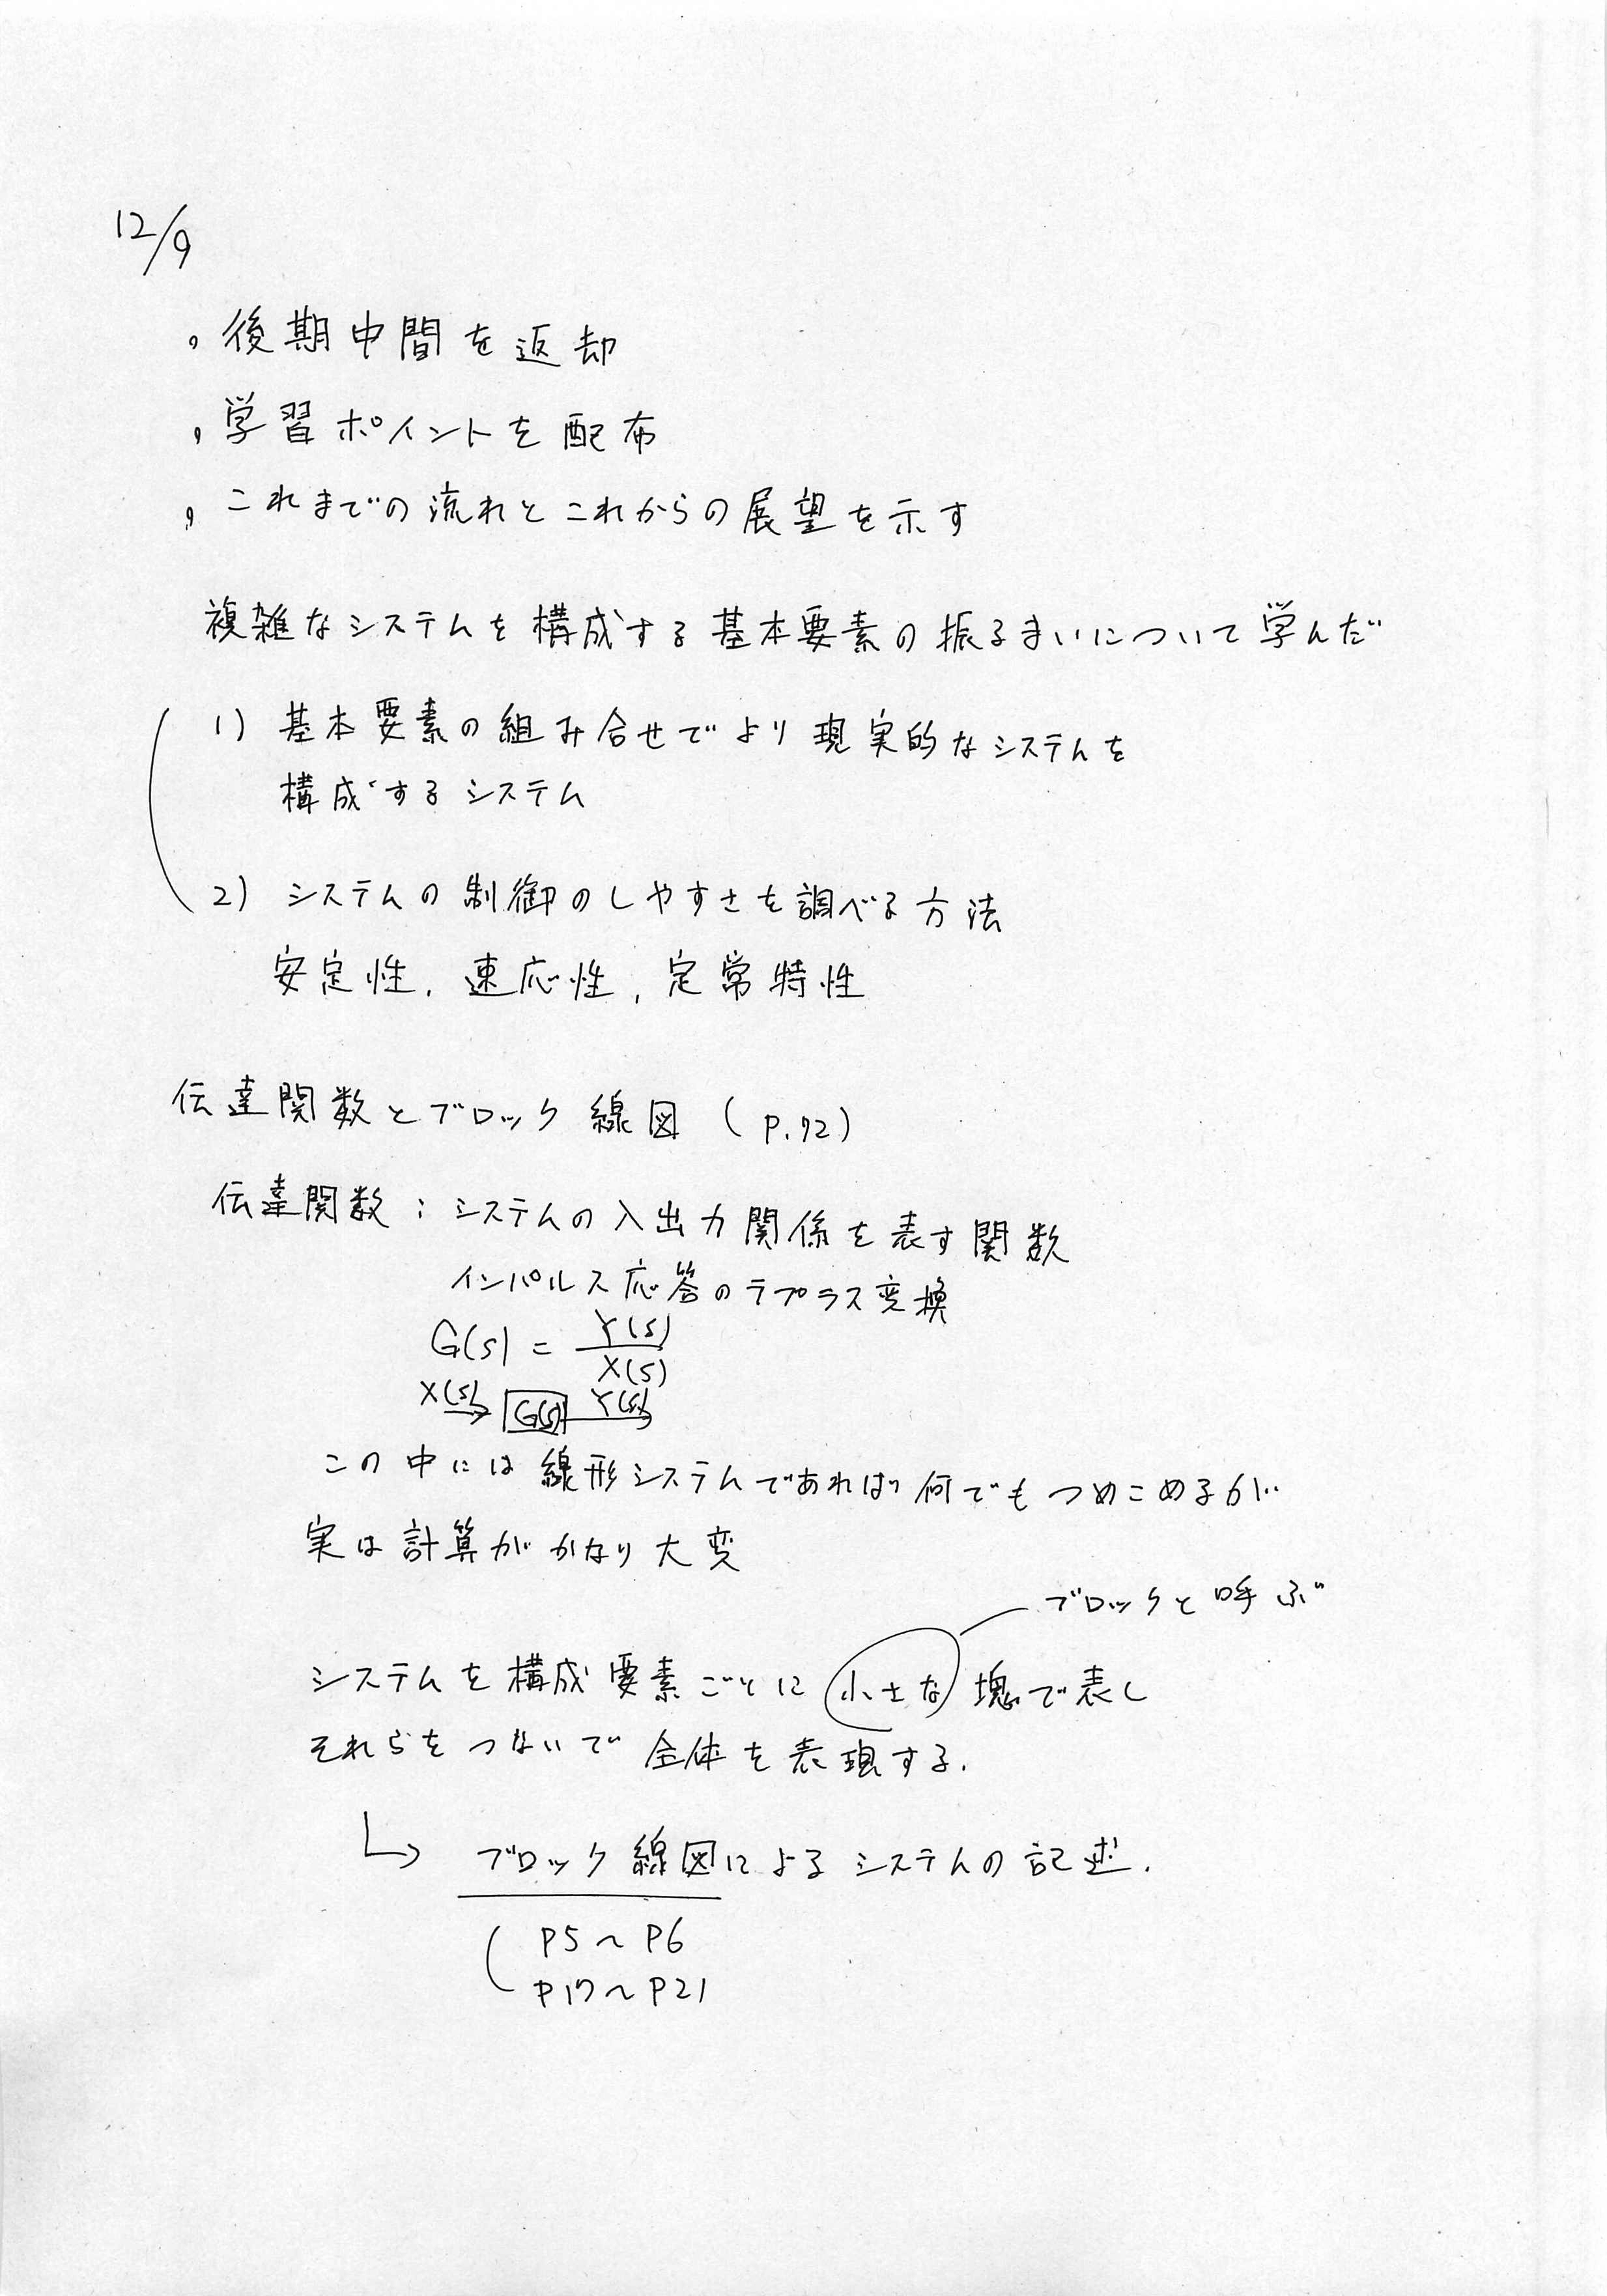 12/9
, 後期中間を返却
, 学習ポイントを配布
, これまでの流れとこれからの展望を示す
複雑なシステムを構成する基本要素の振るまいについて学んだ
1) 基本要素の組み合せでより現実的なシステムを
構成するシステム
2) システムの制御のしやすさを調べる方法
安定性, 速応性, 定常特性
伝達関数とブロック線図 (P.72)
伝達関数 : システムの入出力関係を表す関数
インパルス応答のラプラス変換
G(s) = Y(s)/X(s)
X(s) → G(s) → Y(s)
この中には線形システムであれば何でもつめこめるが..
実は計算がかなり大変
ブロックと呼ぶ
システムを構成要素ごとに小さな塊で表し
それらをつないで全体を表現する.
↳ ブロック線図によるシステムの記述.
( P5~P6
P17~P21